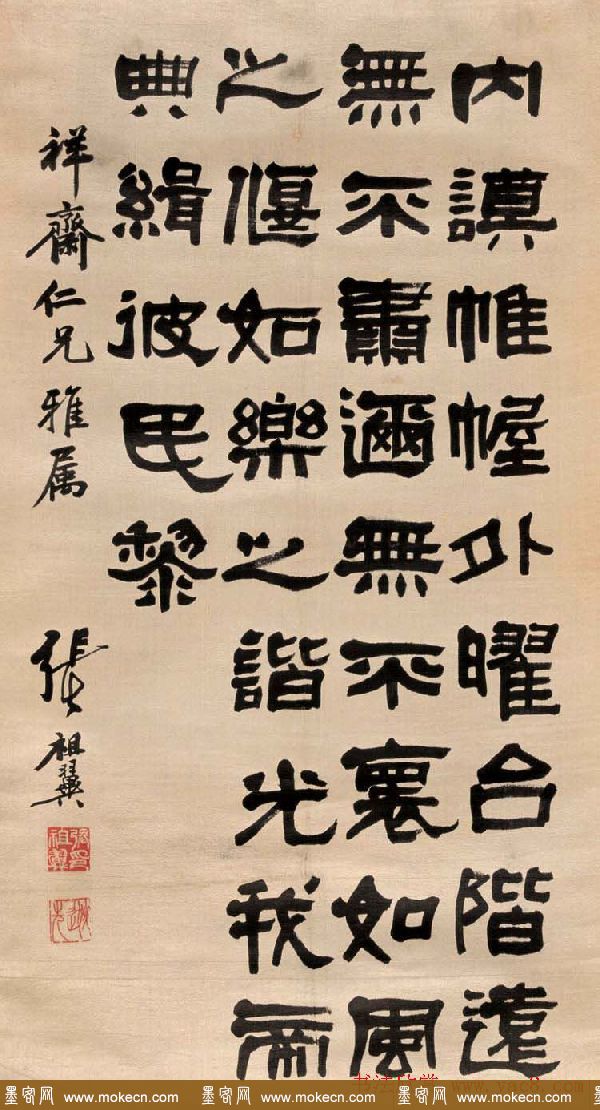 内謨帷幄外曜台階遠
無不肅邇無不襄如風
之偃如樂之諧光我帝
典緝彼民黎
祥齋仁兄雅属
張祖翼
墨客网 www.mokecn.com 墨客网 www.mokecn.com 墨客网 www.mokecn.com